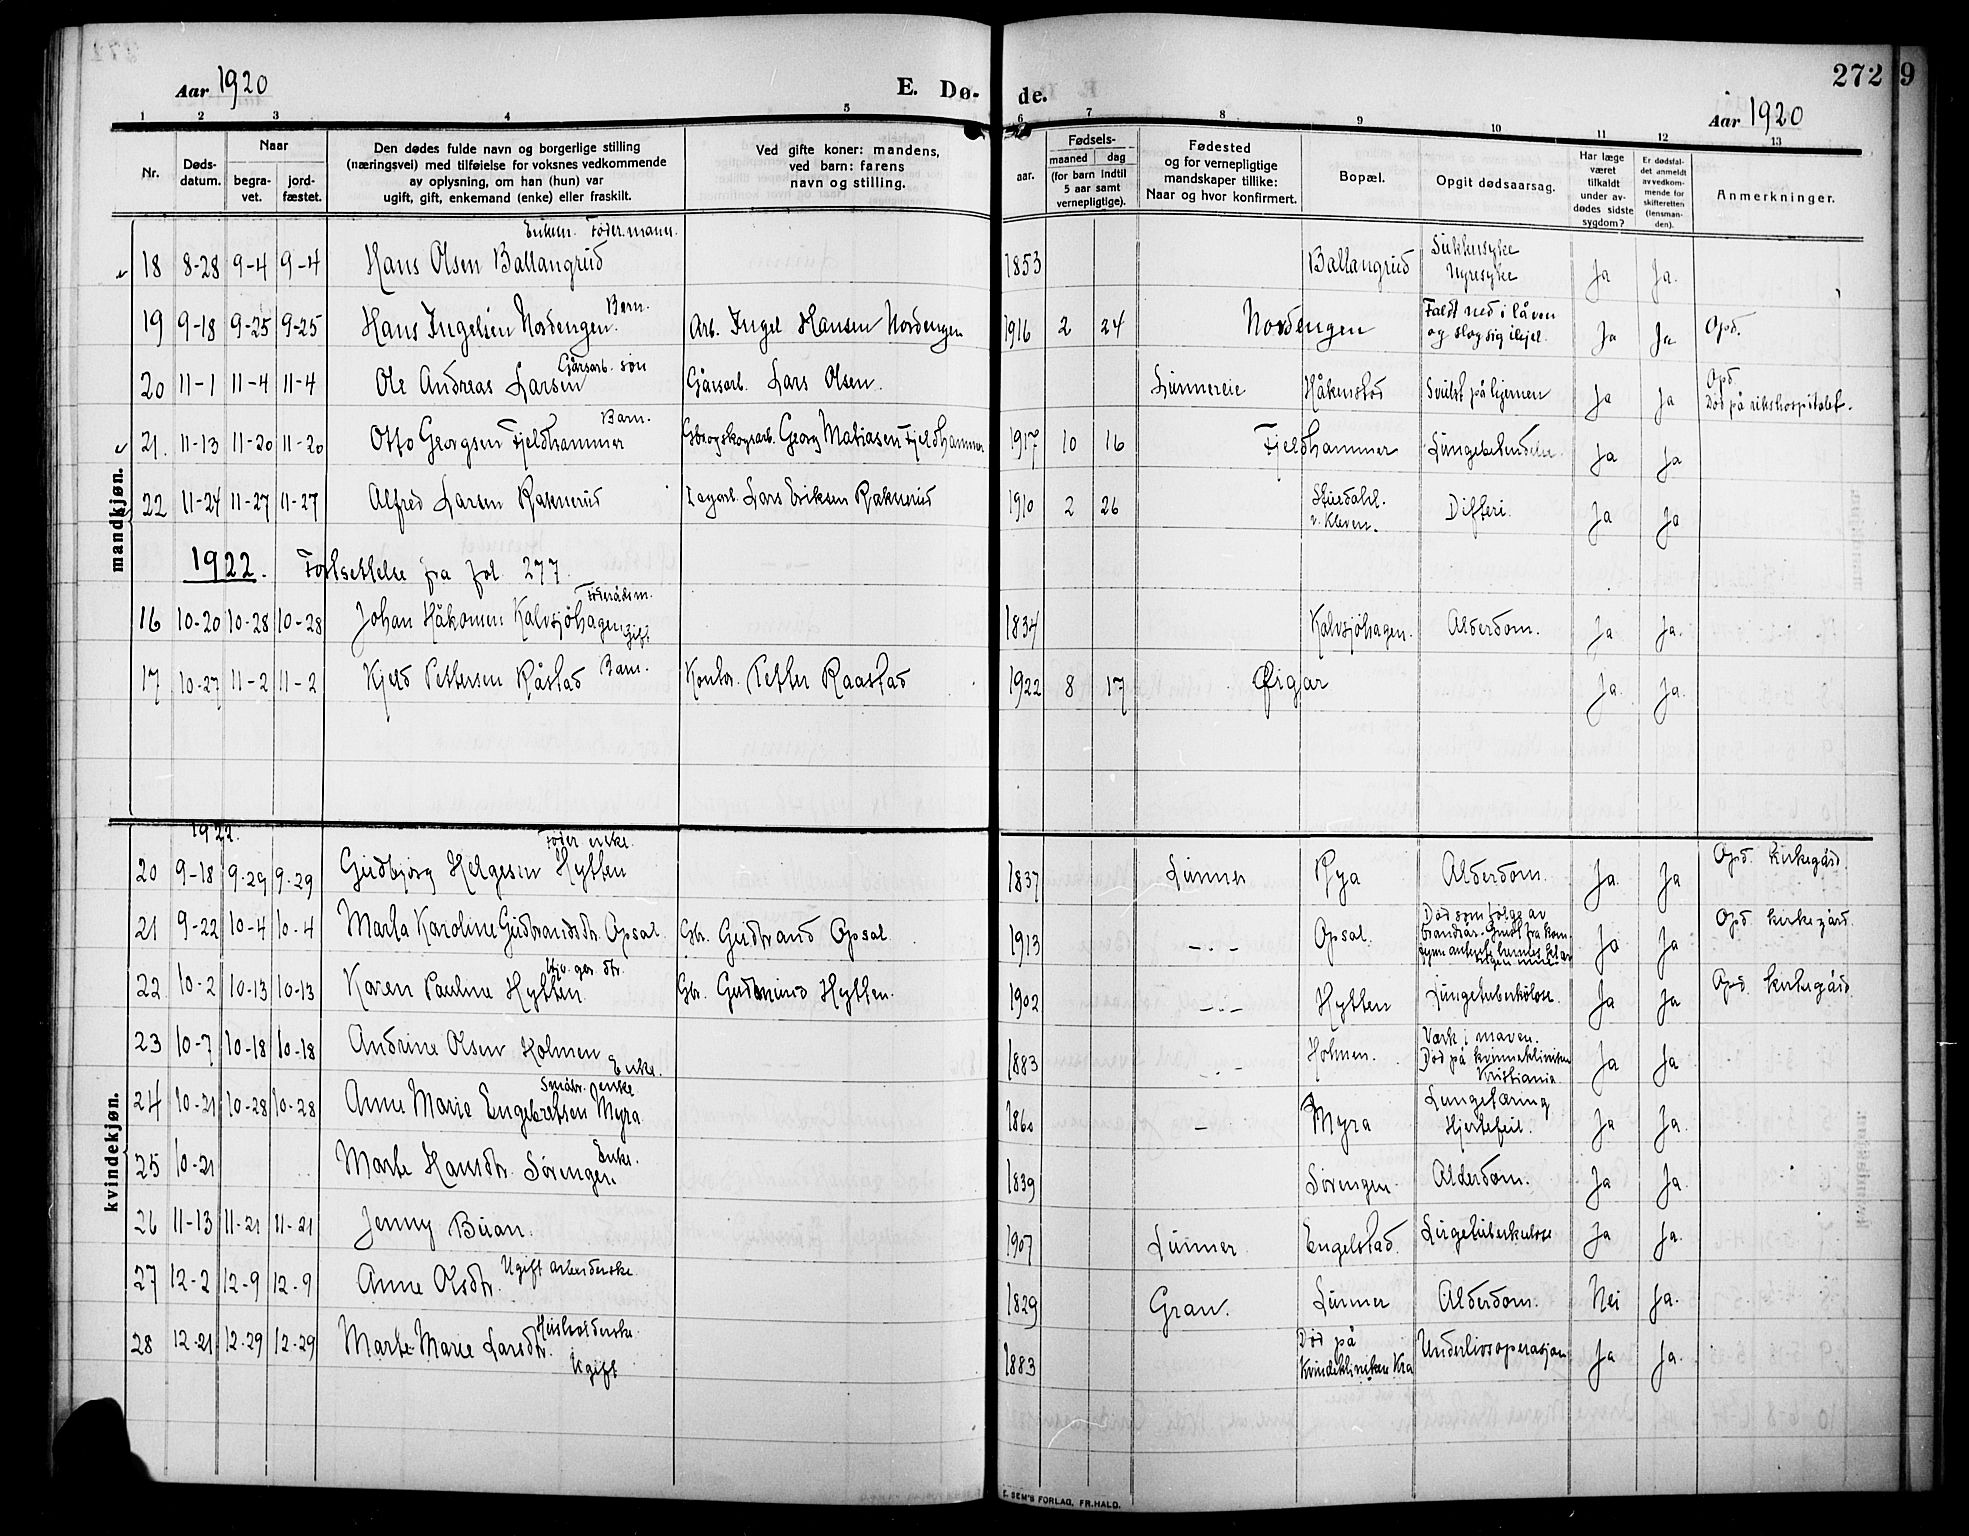 Aar 1920
E. Dø- de.
272
9
Aar 1920
1 2 3 4 5 6 7 8 9 10 11 12 13
Nr.
Døds-
datum.
Naar
begra-
vet.
jord-
fæstet.
Den dødes fulde navn og borgerlige stilling
(næringsvei) med tilføielse for voksnes vedkommende
av oplysning, om han (hun) var
ugift, gift, enkemand (enke) eller fraskilt.
Ved gifte koner: mandens,
ved barn: farens
navn og stilling.
Fødsels-
aar.
maaned dag
(for barn indtil
5 aar samt
vernepligtige).
Fødested
og for vernepligtige
mandskaper tillike:
Naar og hvor konfirmert.
Bopæl.
Opgit dødsaarsag.
Har læge
været
tilkaldt
under av-
dødes sidste
sygdom?
Er dødsfal-
det anmeldt
av vedkom-
mende for
skifteretten
(lensman-
den).
Anmerkninger.
mandkjøn.
18 8-28 9-4 9-4 Hans Olsen Ballangrud 1853 Ballangrud Sukkersyke Nyresyke Ja Ja.
19 9-18 9-25 9-25 Hans Ingelsen Nordengen. Barn. Arb. Ingel Hansen Nordengen 1916 2 24 Nordengen Faldt ned i låven og slog sig ihjel. Ja Ja Opd.
20 11-1 11-4 11-4 Ole Andreas Larsen Gårsarb. søn Gårsarb. Lars Olsen. Lunnereie Håkenstad Svulst på hjernen Ja Ja Opd Død på rikshospitalet.
21. 11-13 11-20 11-20 Otto Georgsen Fjeldhammer Barn. Georg Matiasen Fjeldhammer 1917 10 16 Fjeldhammer Lungebetendelse Ja Ja
22 11-24 11-27 11-27 Alfred Larsen Raknerud Lars Eriksen Raknerud 1910 2 26 v. Kleven. Difteri. Ja Ja
1922. Fortsettelse fra fol. 277.
16 10-20 10-28 10-28 Johan Håkonsen Kalvsjöhagen Föderådsm. gift 1834 Kalvsjöhagen. Alderdom. Ja Ja.
17 10-27 11-2 11-2 Kjeld Pettersen Råstad Barn. Kontor. Petter Raastad 1922 8 17 Öigar Ja. Ja.
kvindekjøn.
1922.
20 9-18 9-29 9-29 Gudbjörg Helgesen Hytten Föder enke. 1837 Lunner Rya Alderdom. Ja. Ja Opd. kirkegård.
21 9-22 10-4 10-4 Marta Karoline Gudbrandsdtr. Opsal Gbr. Gudbrand Opsal. 1913 -"- Opsal. Død som følge av brandsår. Gnist fra kom- Ja Ja Opd kirkegård.
22 10-2 10-13 10-13 Karen Pauline Hytten. dtr. Gbr. Gudmund Hytten. 1902 -"- Hytten Lungetuberkulose. Ja Ja Opd. kirkegård.
23 10-7 10-18 10-18 Andrine Olsen Holmen Enke. 1883 -"- Holmen. Værk i maven. Død på kvinneklinikken Kristiania. Ja Ja.
24 10-21 10-28 10-28 Anne Marie Engebretsen Myra Småbr. enke 1860 - Myra Lungetæring Hjertefeil. Ja Ja.
25 10-21 Marte Hansdtr. Sörengen Enke. 1839 Sörengen. Alderdom. Ja Ja.
26 11-13 11-21 11-21 Jenny Buan. 1907 Lunner. Engelstad. Lungetuberkulose Ja Ja.
27 12-2 12-9 12-9 Anne Olsdtr. Ugift arbeiderske 1829 Gran. Lunner Alderdom. Nei Ja.
28 12-21 12-29 12-29 Marte Marie Larsdtr. Husholderske. Ugift 1883 Død på Kvindeklinikken Kra Underlivsoperasjon Ja Ja.
E. SEM'S FORLAG, FR.HALD.